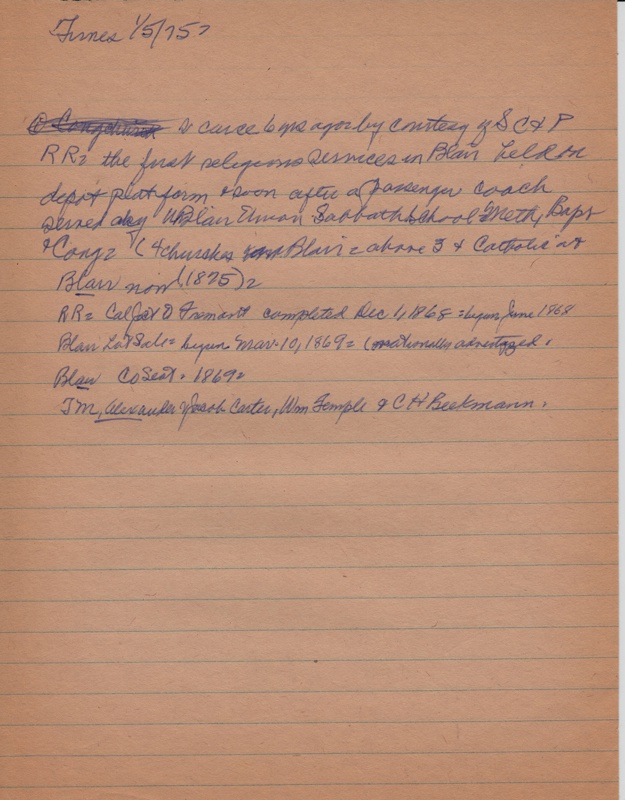 Times 1/5/75
6 yrs ago by courtesy of S C & P
RR = the first religious services in Blair held on
depot platform & soon after a passenger coach
served Blair Union Sabbath School = Meth, Bap
& Cong = (4 churches in Blair = above 3 & Catholic at
Blair now (1875) =
RR = Cal Jct Fremont completed Dec 1, 1868 = begun June 1868
Blair Lot Sale = begun Mar. 10, 1869 = (nationally advertized.
Blair Co Seat = 1869 =
J M, Alexander, Jacob Carter, Wm Temple & C H Beekmann.